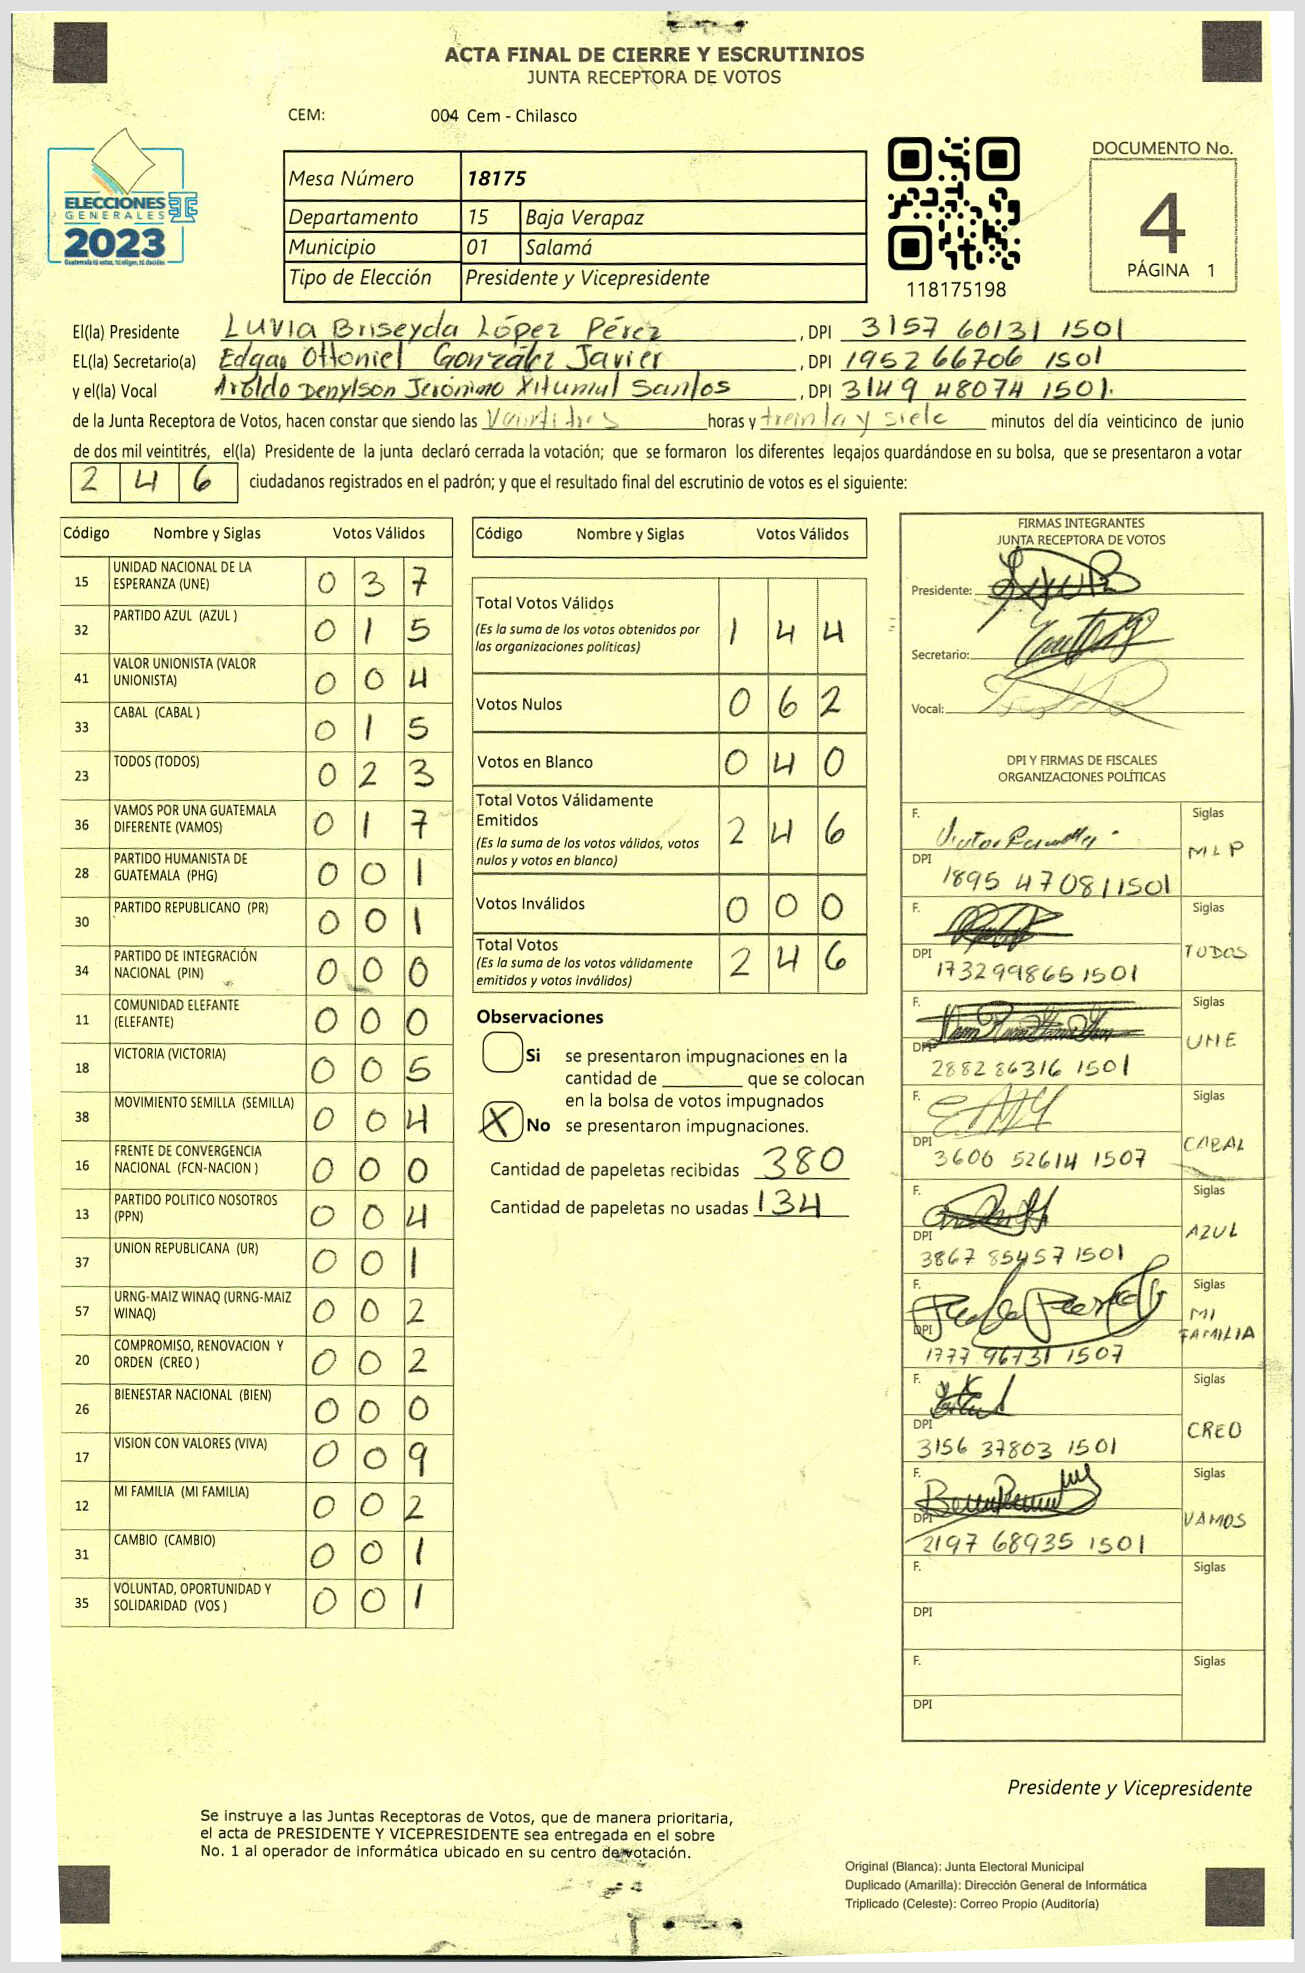 ACTA FINAL DE CIERRE Y ESCRUTINIOS
JUNTA RECEPTORA DE VOTOS
CEM: 004 Cem - Chilasco
ELECCIONES
GENERALES
2023
Guatemala tú votas, tú eliges, tú decides
Mesa Número 18175
Departamento 15 Baja Verapaz
Municipio 01 Salamá
Tipo de Elección Presidente y Vicepresidente
118175198
DOCUMENTO No.
4
PÁGINA 1
El(la) Presidente Luvia Briseyda López Pérez, DPI 3157 60131 1501
EL(la) Secretario(a) Edgar Ottoniel González Javier, DPI 1952 66706 1501
y el(la) Vocal Aroldo Denylson Jerónimo Xitumul Santos, DPI 3149 48074 1501.
de la Junta Receptora de Votos, hacen constar que siendo las horas y treinta y siete minutos del día veinticinco de junio
de dos mil veintitrés, el(la) Presidente de la junta declaró cerrada la votación; que se formaron los diferentes legajos guardándose en su bolsa, que se presentaron a votar
2 4 6 ciudadanos registrados en el padrón; y que el resultado final del escrutinio de votos es el siguiente:
Código Nombre y Siglas Votos Válidos
15 UNIDAD NACIONAL DE LA ESPERANZA (UNE) 0 3 7
32 PARTIDO AZUL (AZUL ) 0 1 5
41 VALOR UNIONISTA (VALOR UNIONISTA) 0 0 4
33 CABAL (CABAL ) 0 1 5
23 TODOS (TODOS) 0 2 3
36 VAMOS POR UNA GUATEMALA DIFERENTE (VAMOS) 0 1 7
28 PARTIDO HUMANISTA DE GUATEMALA (PHG) 0 0 1
30 PARTIDO REPUBLICANO (PR) 0 0 1
34 PARTIDO DE INTEGRACIÓN NACIONAL (PIN) 0 0 0
11 COMUNIDAD ELEFANTE (ELEFANTE) 0 0 0
18 VICTORIA (VICTORIA) 0 0 5
38 MOVIMIENTO SEMILLA (SEMILLA) 0 0 4
16 FRENTE DE CONVERGENCIA NACIONAL (FCN-NACION ) 0 0 0
13 PARTIDO POLITICO NOSOTROS (PPN) 0 0 4
37 UNION REPUBLICANA (UR) 0 0 1
57 URNG-MAIZ WINAQ (URNG-MAIZ WINAQ) 0 0 2
20 COMPROMISO, RENOVACION Y ORDEN (CREO ) 0 0 2
26 BIENESTAR NACIONAL (BIEN) 0 0 0
17 VISION CON VALORES (VIVA) 0 0 9
12 MI FAMILIA (MI FAMILIA) 0 0 2
31 CAMBIO (CAMBIO) 0 0 1
35 VOLUNTAD, OPORTUNIDAD Y SOLIDARIDAD (VOS ) 0 0 1
Código Nombre y Siglas Votos Válidos
Total Votos Válidos 1 4 4
(Es la suma de los votos obtenidos por
las organizaciones políticas)
Votos Nulos 0 6 2
Votos en Blanco 0 4 0
Total Votos Válidamente
Emitidos 2 4 6
(Es la suma de los votos válidos, votos
nulos y votos en blanco)
Votos Inválidos 0 0 0
Total Votos 2 4 6
(Es la suma de los votos válidamente
emitidos y votos inválidos)
Observaciones
Si se presentaron impugnaciones en la
cantidad de ________ que se colocan
en la bolsa de votos impugnados
X No se presentaron impugnaciones.
Cantidad de papeletas recibidas 380
Cantidad de papeletas no usadas 134
FIRMAS INTEGRANTES
JUNTA RECEPTORA DE VOTOS
Presidente:
Secretario:
Vocal:
DPI Y FIRMAS DE FISCALES
ORGANIZACIONES POLÍTICAS
F. Siglas
MLP
DPI 1895 47081 1501
F. Siglas
TODOS
DPI 1732998651501
F. Siglas
UNE
DPI 2882 86316 1501
F. Siglas
CABAL
DPI 3600 52614 1507
F. Siglas
AZUL
DPI 3867 85457 1501
F. Siglas
MI FAMILIA
DPI 1777 96731 1507
F. Siglas
CREO
DPI 3156 37803 1501
F. Siglas
VAMOS
DPI 2197 68935 1501
F. Siglas
DPI
F. Siglas
DPI
Presidente y Vicepresidente
Se instruye a las Juntas Receptoras de Votos, que de manera prioritaria,
el acta de PRESIDENTE Y VICEPRESIDENTE sea entregada en el sobre
No. 1 al operador de informática ubicado en su centro de votación.
Original (Blanca): Junta Electoral Municipal
Duplicado (Amarilla): Dirección General de Informática
Triplicado (Celeste): Correo Propio (Auditoría)